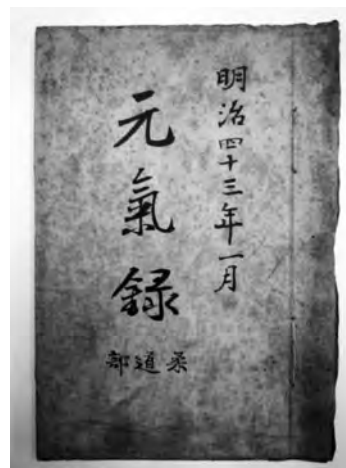 明治四十三年一月
元氣録
柔道部